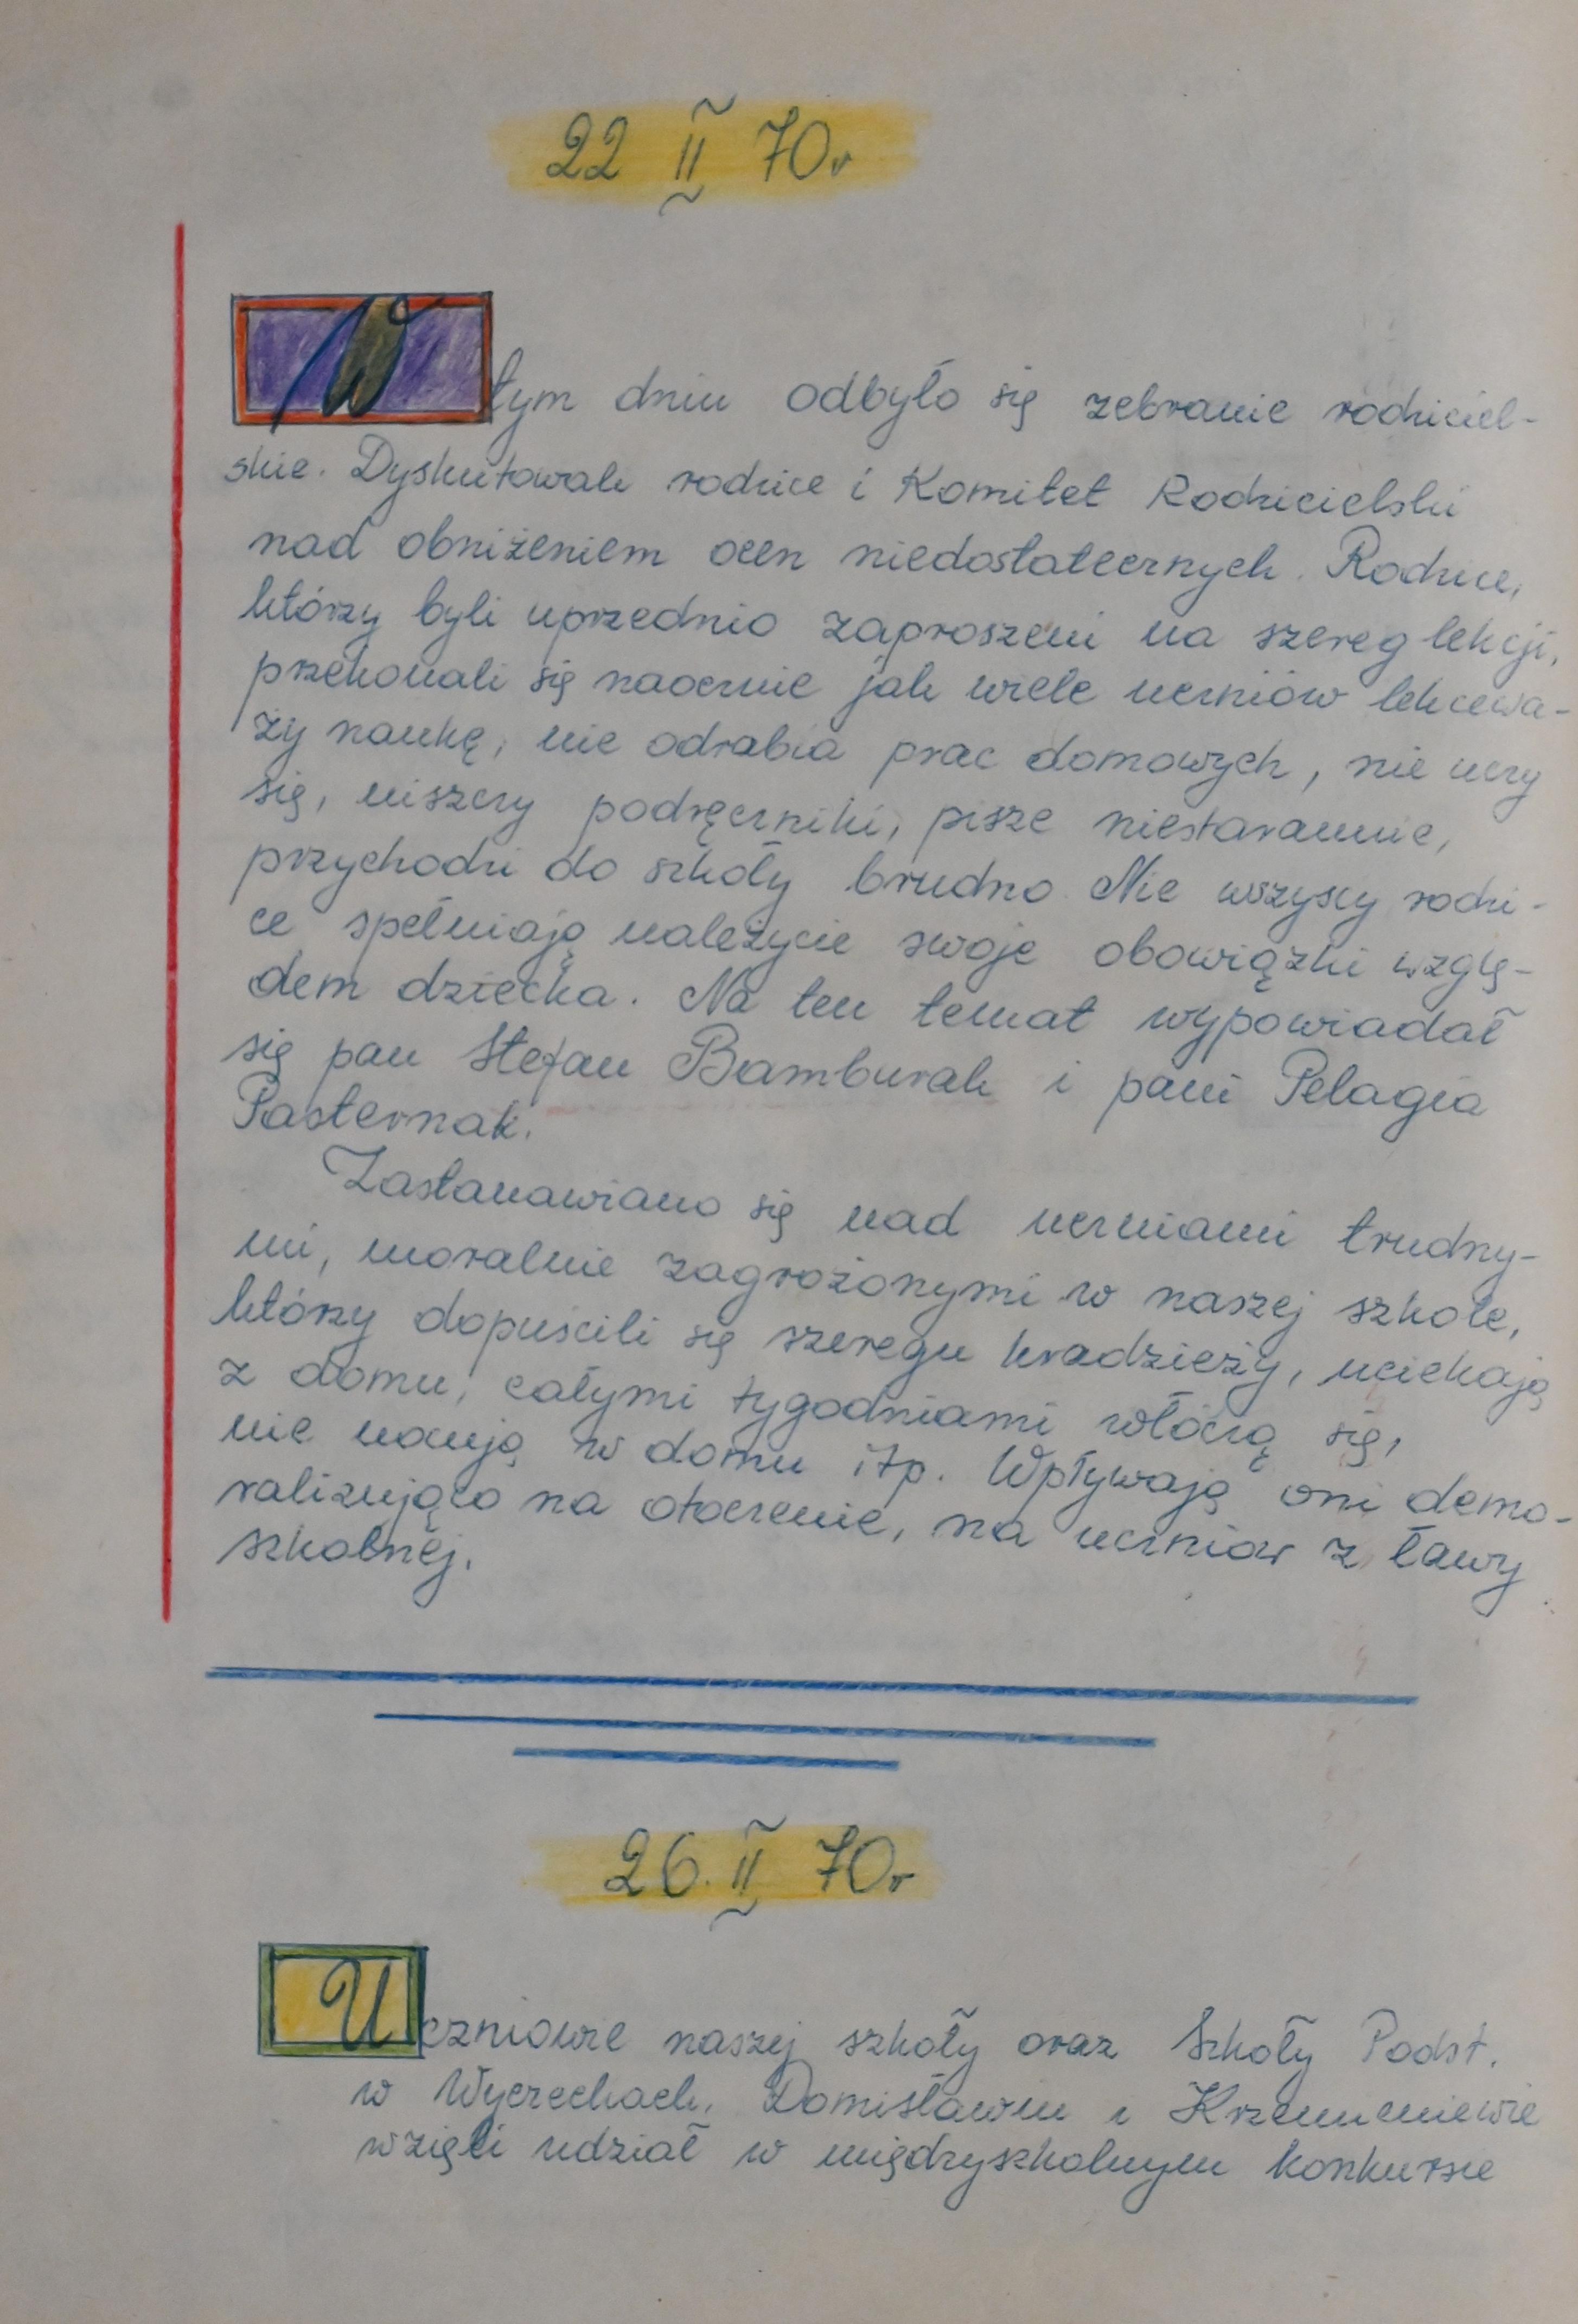 22 II 70r
W tym dniu odbyło się zebranie rodziciel-
skie. Dyskutowali rodzice i Komitet Rodzicielski
nad obniżeniem ocen niedostatecznych. Rodzice,
którzy byli uprzednio zaproszeni na szereg lekcji,
przekonali się naocznie jak wiele uczniów lekcewa-
ży naukę, nie odrabia prac domowych, nie uczy
się, niszczy podręczniki, pisze niestarannie,
przychodzi do szkoły brudno. Nie wszyscy rodzi-
ce spełniają należycie swoje obowiązki wzglę-
dem dziecka. Na ten temat wypowiadał
się pan Stefan Bamburak i pani Pelagia
Pasternak.
Zastanawiano się nad uczniami trudny-
mi, moralnie zagrożonymi w naszej szkole,
którzy dopuścili się szeregu kradzieży, uciekają
z domu, całymi tygodniami włóczą się,
nie nocują w domu itp. Wpływają oni demo-
ralizująco na otoczenie, na uczniów z ławy
szkolnej.
26. II 70r
Uczniowie naszej szkoły oraz Szkoły Podst.
w Wyczechach, Domisławiu i Krzemieniewie
wzięli udział w międzyszkolnym konkursie